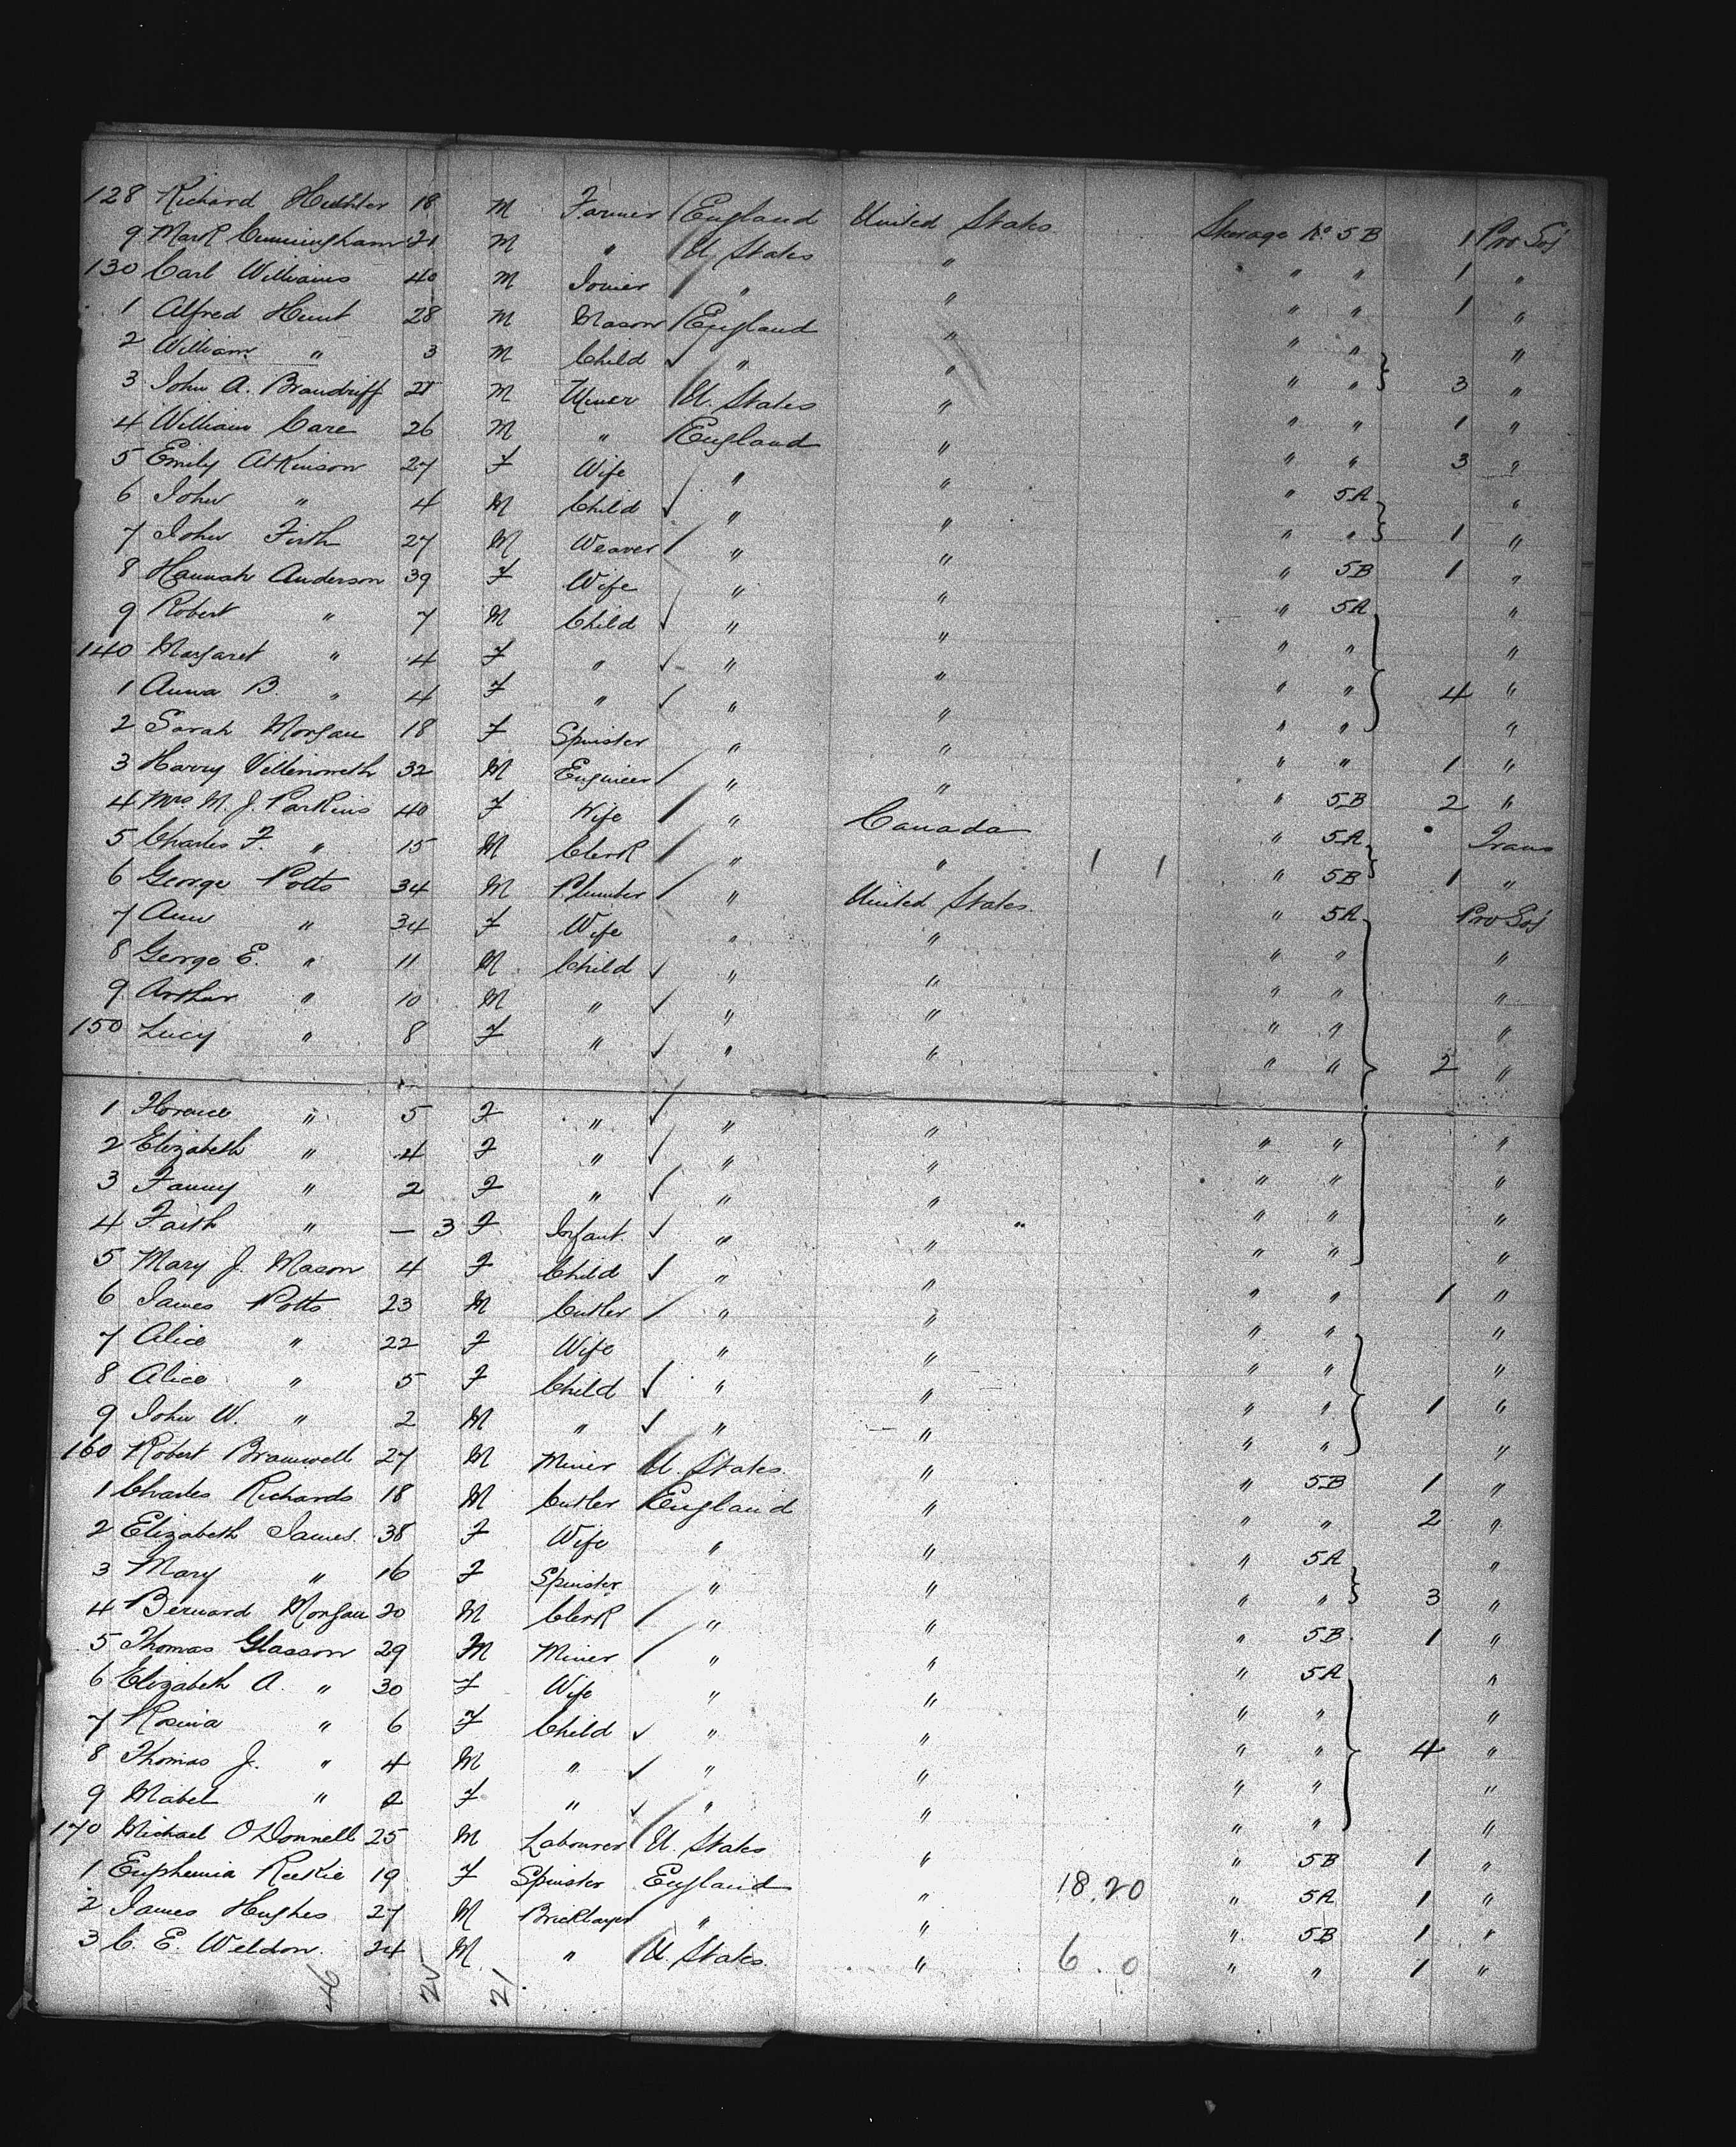 128 Richard 18 M Farmer England United States Steerage No 5B 1 Pro Soj
9 Mark Cunningham 21 M " U. States " " " 1 "
130 Carl Williams 40 M Joiner " " " " 1 "
1 Alfred Hunt 28 M Mason England " " " "
2 William " 3 M Child " " " " 3 "
3 John A. Brandriff M Miner U. States " " " 1 "
4 William Care 26 M " England " " " 3 "
5 Emily Atkinson 27 F Wife " " " 5A "
6 John " 4 M Child " " " " 1 "
7 John Firth 27 M Weaver " " " 5B 1 "
8 Hannah Anderson 39 F Wife " " " 5A "
9 Robert " 7 M Child " " " " "
140 Margaret " 4 F " " " " " 4 "
1 Anna B. " 4 F " " " " " "
2 Sarah Morgan 18 F Spinster " " " " 1 "
3 Harry 32 M Engineer " " " 5B 2 "
4 Mrs. M. J. Parkins 40 F Wife " Canada " 5A Trans
5 Charles F. " 15 M Clerk " " 1 1 " 5B 1 "
6 George Potts 34 M Plumber " United States " 5A Pro Soj
7 Ann " 34 F Wife " " " " "
8 George E. " 11 M Child " " " " "
9 Arthur " 10 M " " " " " "
150 Lucy " 8 F " " " " " 2 "
1 Florence " 5 F " " " " " "
2 Elizabeth " 4 F " " " " " "
3 Fanny " 2 F " " " " " "
4 Faith " — 3 F Infant " " " " "
5 Mary J. Mason 4 F Child " " " " 1 "
6 James Potts 23 M Cutler " " " " "
7 Alice " 22 F Wife " " " " "
8 Alice " 5 F Child " " " " 1 "
9 John W. " 2 M " " " " " "
160 Robert Bramwell 27 M Miner U. States " " 5B 1 "
1 Charles Richards 18 M Cutler England " " " 2 "
2 Elizabeth James 38 F Wife " " " 5A "
3 Mary " 16 F Spinster " " " " 3 "
4 Bernard Morgan 20 M Clerk " " " 5B 1 "
5 Thomas Glasson 29 M Miner " " " 5A "
6 Elizabeth A. " 30 F Wife " " " " "
7 Rosina " 6 F Child " " " " 4 "
8 Thomas J. " 4 M " " " " " "
9 Mabel " 2 F " " " " " "
170 Michael O'Donnell 25 M Labourer U. States " " 5B 1 "
1 Euphemia Reekie 19 F Spinster England " 18.20 " 5A 1 "
2 James Hughes 27 M Bricklayer " " " 5B 1 "
3 C. E. Weldon 24 M " U. States " 6.0 " " 1 "
46 21